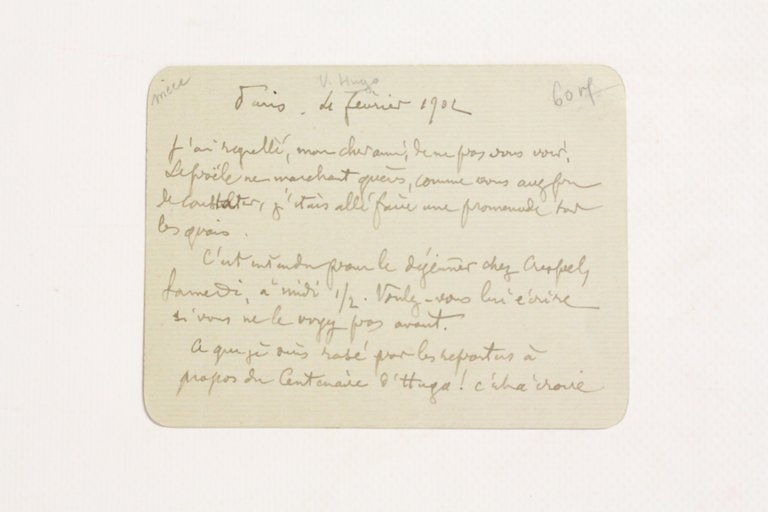 V. Hugo
Paris. Le février 1902
J'ai regretté, mon cher ami, de ne pas vous voir,
Le poêle ne marchant guère, comme vous avez pu
le constater, j'étais allé faire une promenade sur
les quais.
C'est entendu pour le déjeuner chez Crespel,
Samedi, à midi 1/2. Voulez-vous lui écrire
si vous ne le voyez pas avant.
Ce que je suis rasé par les reporters à
propos du Centenaire d'Hugo ! c'est à croire